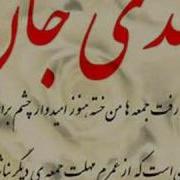 دی جا
رفت جمعه ها من خسته هنوز امیدوار چشم برا
است که از عمرم مهلت جمعه ی دیگر